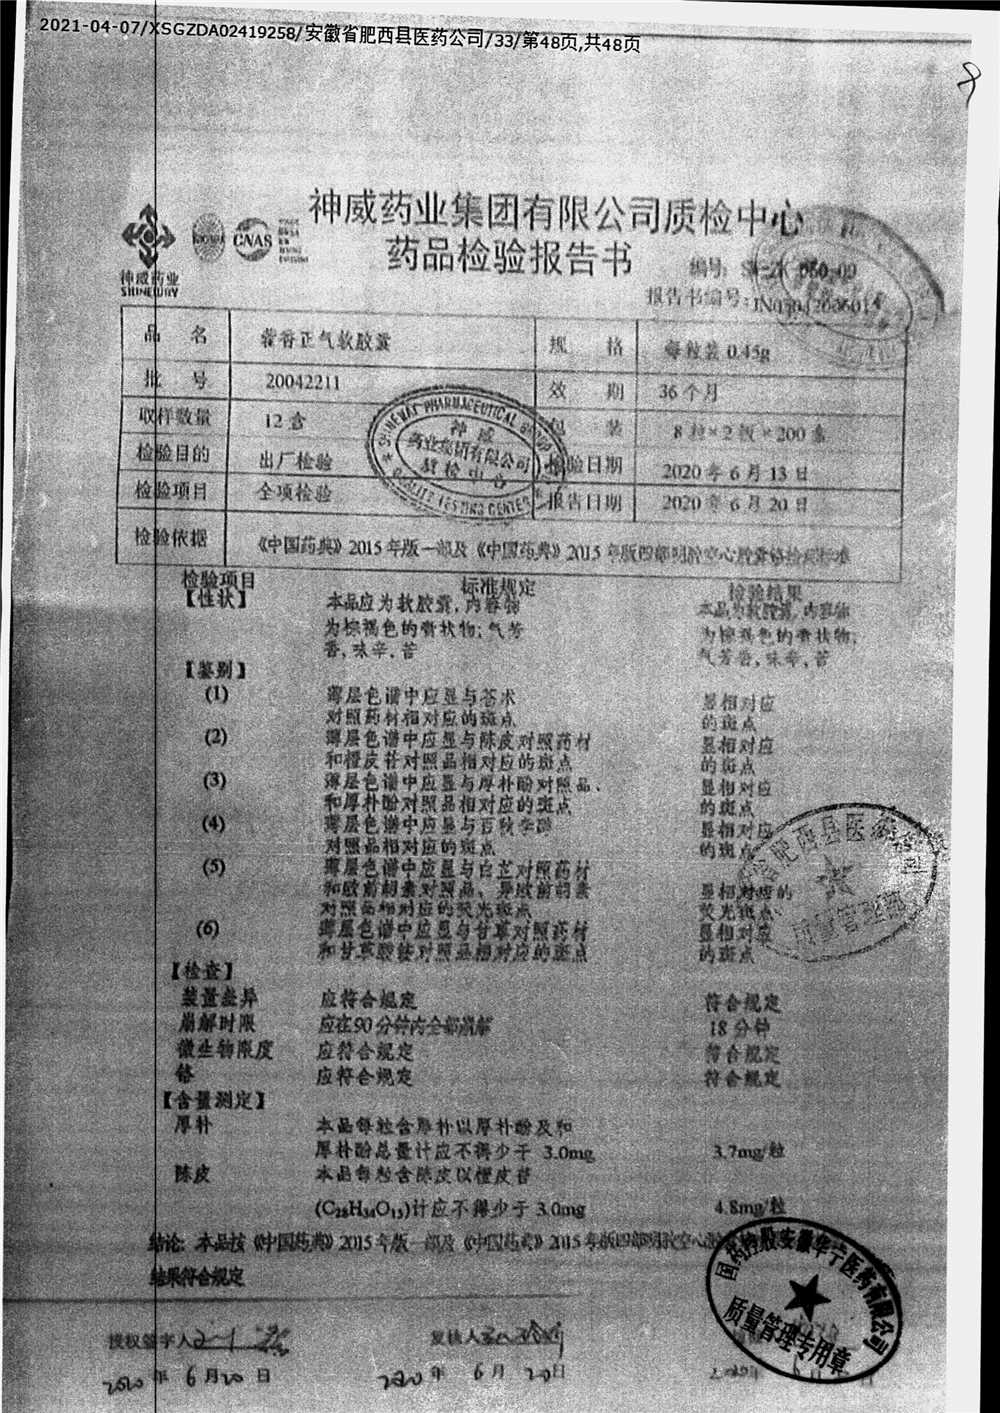 2021-04-07/XSGZDA02419258/安徽省肥西县医药公司/33/第48页,共48页
神威药业集团有限公司质检中心
药品检验报告书
神威药业
SHINEWAY
CNAS
编号:
报告书编号:
品 名 藿香正气软胶囊 规 格 每粒装 0.45g
批 号 20042211 效 期 36个月
取样数量 12盒 包 装 8粒×2板×200盒
检验目的 出厂检验 检验日期 2020年6月13日
检验项目 全项检验 报告日期 2020年6月20日
检验依据 《中国药典》2015年版一部及《中国药典》2015年版四部明胶空心胶囊铬检验标准
SHINEWAY PHARMACEUTICAL GROUP
神威
药业集团有限公司
质检中心
QUALITY TESTING CENTER
检验项目 标准规定 检验结果
【性状】 本品应为软胶囊,内容物 本品为软胶囊,内容物
为棕褐色的膏状物;气芳 为棕褐色的膏状物;
香,味辛、苦 气芳香,味辛、苦
【鉴别】
(1) 薄层色谱中应显与苍术 显相对应
对照药材相对应的斑点 的斑点
(2) 薄层色谱中应显与陈皮对照药材 显相对应
和橙皮苷对照品相对应的斑点 的斑点
(3) 薄层色谱中应显与厚朴酚对照品、 显相对应
和厚朴酚对照品相对应的斑点 的斑点
(4) 薄层色谱中应显与百秋李醇 显相对应
对照品相对应的斑点 的斑点
(5) 薄层色谱中应显与白芷对照药材
和欧前胡素对照品、异欧前胡素 显相对应的
对照品相对应的荧光斑点 荧光斑点
(6) 薄层色谱中应显与甘草对照药材 显相对应
和甘草酸铵对照品相对应的斑点 的斑点
【检查】
装量差异 应符合规定 符合规定
崩解时限 应在90分钟内全部崩解 18分钟
微生物限度 应符合规定 符合规定
铬 应符合规定 符合规定
【含量测定】
厚朴 本品每粒含厚朴以厚朴酚及和
厚朴酚总量计应不得少于 3.0mg 3.7mg/粒
陈皮 本品每粒含陈皮以橙皮苷
(C28H34O15)计应不得少于3.0mg 4.8mg/粒
结论: 本品按《中国药典》2015年版一部及《中国药典》2015年版四部明胶空心胶
结果符合规定
肥西县医药公司
质量管理部
国药控股安徽华宁医药有限公司
质量管理专用章
授权签字人 复核人
2020年6月20日 2020年6月20日